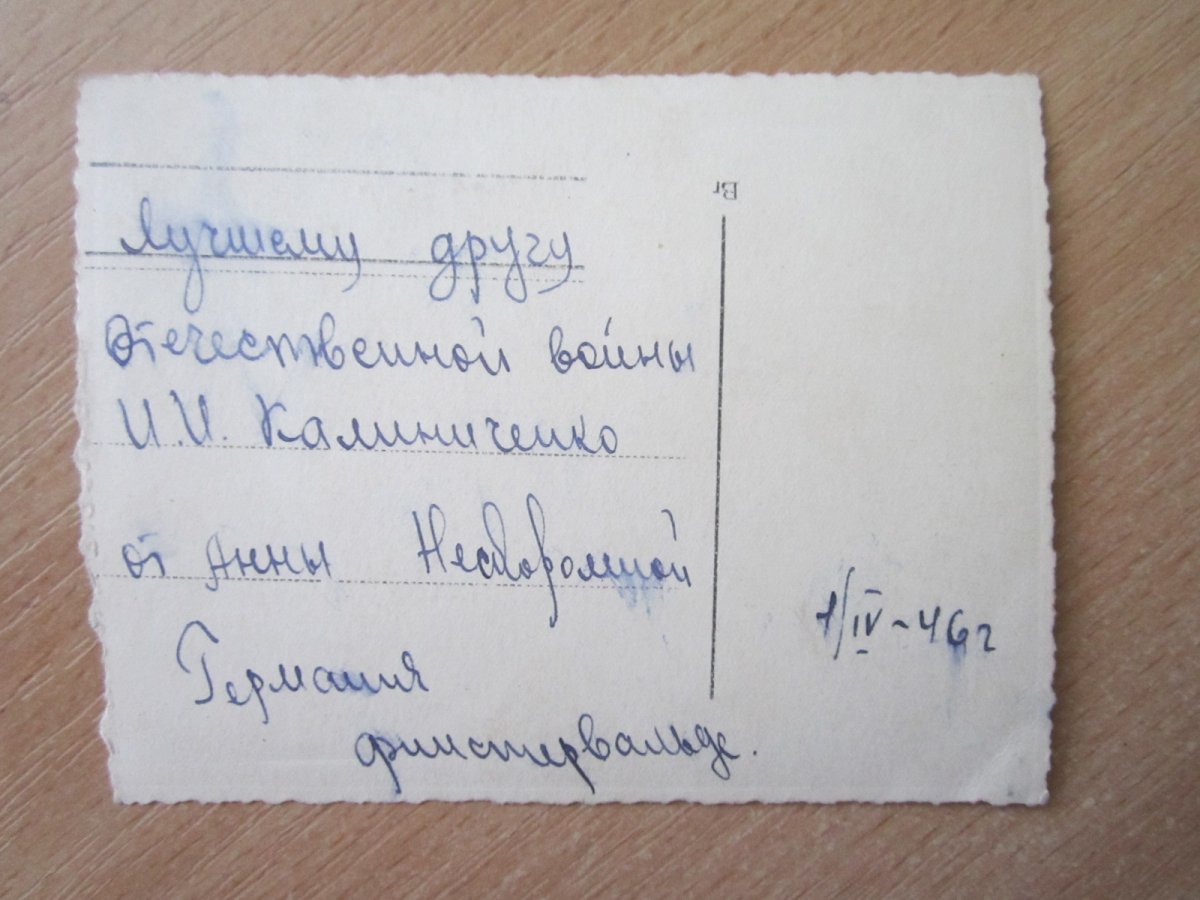 Лучшему другу
Отечественной войны
И.И. Калиниченко
от Анны
Германия
финстервальде.
1/IV-46г
Br